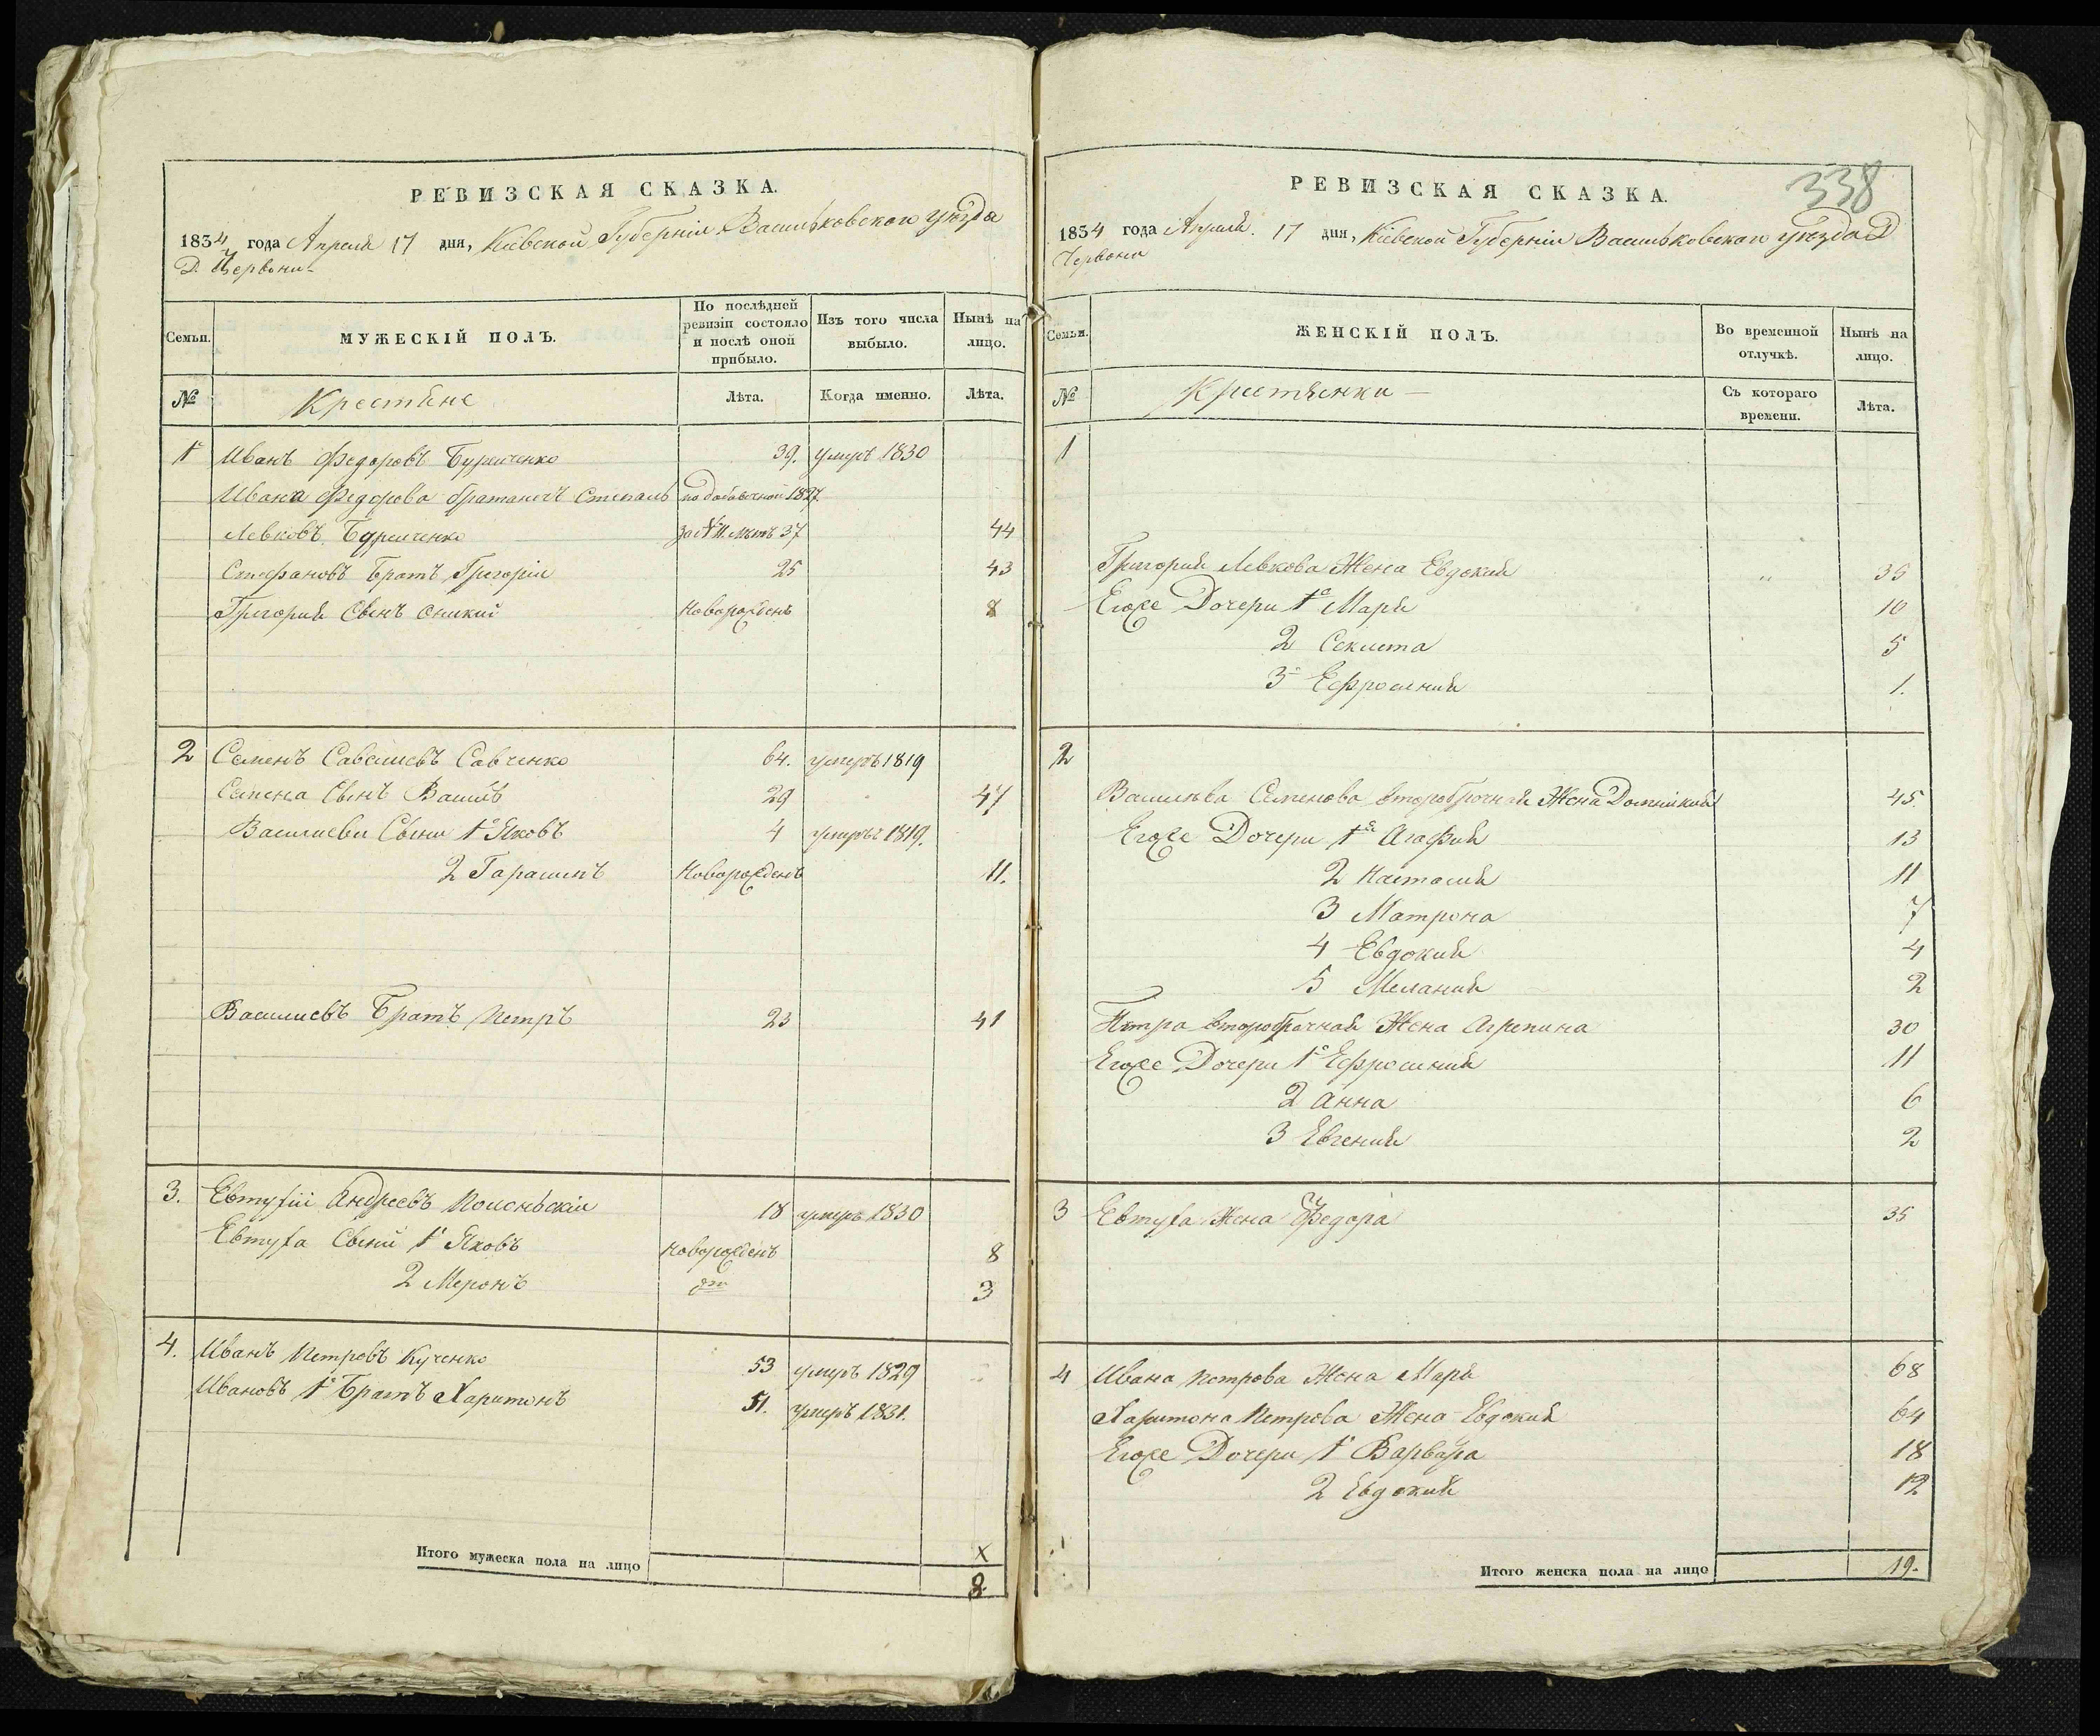 РЕВИЗСКАЯ СКАЗКА.
1834 года Апреля 17 дня, Кіевской Губерніи Васильковскаго уѣзда
Д. Червони
Семьи.
МУЖЕСКІЙ ПОЛЪ.
По послѣдней ревизіи состояло и послѣ оной прибыло.
Изъ того числа выбыло.
Нынѣ на лицо.
№ Крестяне Лѣта. Когда именно. Лѣта.
1 Иванъ Федоровъ 39. умръ 1830
Ивана Федорова братаничъ Степанъ по добавочной 1827
Левковъ 37 44
Стефановъ Братъ Григорій 25 43
Григорія Сынъ Оникій Новорожденъ 8
2 Семенъ Савелиевъ Савченко 64. умеръ 1819
Семена Сынъ Василь 29 47
Василиевы Сыны 1й Яковъ 4 умеръ 1819.
2 Гарасимъ Новорожденъ 11.
Василиевъ Братъ Петръ 23 41
3. Евтухій Андреевъ 18 умеръ 1830
Евтуха Сыны 1 Яковъ Новорожденъ 8
2 Меронъ 3
4. Иванъ Петровъ Кученко 53 умеръ 1829
Ивановъ 1й Братъ Харитонъ 51. умеръ 1831.
Итого мужеска пола на лицо
X
8
338
РЕВИЗСКАЯ СКАЗКА.
1834 года Апреля 17 дня, Кіевской Губерніи Васильковскаго уѣзда Д
Червони
Семьи.
ЖЕНСКІЙ ПОЛЪ.
Во временной отлучкѣ.
Нынѣ на лицо.
№ Крестянки Съ котораго времени. Лѣта.
1
Григорія Левкова Жена Евдокия 35
Егоже Дочери 1я Маря 10
2 Секлета 5
3 Ефросиния 1.
2
Василѣва Семенова второбрачная Жена Домникия 45.
Егоже Дочери 1я Агафия 13
2 Настасия 11
3 Матрона 7
4 Евдокия 4
5 Мелания 2
Петра второбрачная Жена Агрепина 30
Егоже Дочери 1я Ефросиния 11
2 Анна 6
3 Евгения 2
3 Евтуха Жена Федора 35
4 Ивана Петрова Жена Маря 68
Харитона Петрова Жена Евдокия 64
Егоже Дочери 1 Варвара 18
2 Евдокия 12
Итого женска пола на лицо 19.